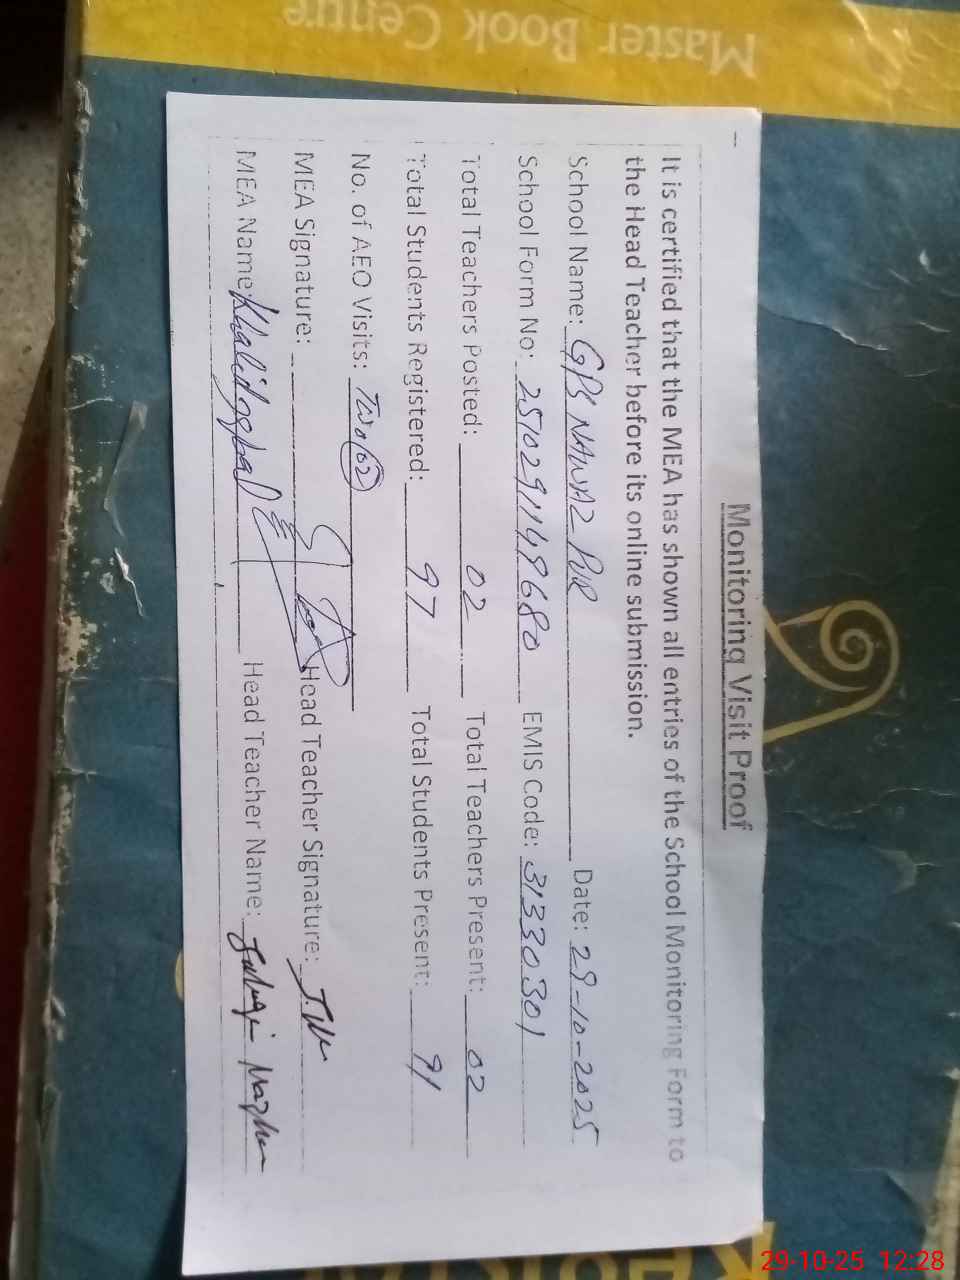 Master Book Centre
Monitoring Visit Proof
It is certified that the MEA has shown all entries of the School Monitoring Form to
the Head Teacher before its online submission.
School Name: GPS NAWAZ PUR Date: 29-10-2025
School Form No: 25102911498680 EMIS Code: 31330301
Total Teachers Posted: 02 Total Teachers Present: 02
Total Students Registered: 97 Total Students Present: 91
No. of AEO Visits: Two (02)
MEA Signature: Head Teacher Signature:
MEA Name: Khalid Iqbal Head Teacher Name:
29-10-25 12:28